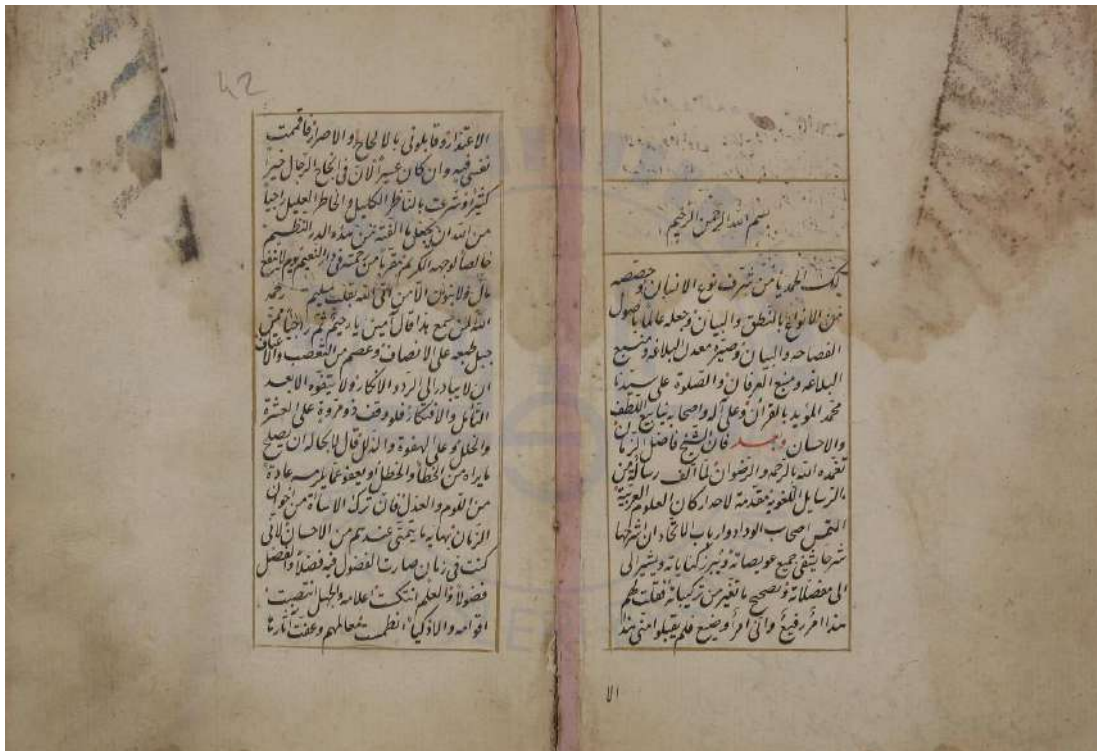 بسم الله الرحمن الرحيم
لك الحمد يا من شرف نوع الانسان وخصصه
من الانواع بالنطق والبيان وجعله عالما باصول
الفصاحه والبيان وصيره معدل البلاغه ومنبع
البلاغه ومنبع العرفان والصلوة على سيدنا
محمد المؤيد بالقرآن وعلى آله واصحابه ينابيع اللطف
والاحسان وبعد فان الشيخ فاضل الزمان
تغمده الله بالرحمة والرضوان لما ألف رسالة من
الرسايل اللغوية مقدمة لاحد اركان العلوم العربية
التمس اصحاب الوداد وارباب الاتحاد ان اشرحها
شرحا يشفى جميع عويصاته ويبرز كناياته ويشير الى
الى معضلاته ويصحح ما تغير من تركيباته فقلت لهم
هذا امر رفيع وانى امرأ وضيع فلم يقبلوا منى هذا
الا
42
الاعتذار وقابلونى بالالحاح والاصرار فاقحمت
نفسى فيه وان كان عسيرا لان فى انجاح الرجال خيرا
كثيرا وشرعت بالناظر الكليل والخاطر العليل راجيا
من الله ان يجعل ما الفته من هذه الدرر النظيم
خالصا لوجهه الكريم مقربا من رحمته فى دار النعيم يوم لا ينفع
مال ولا بنون الا من اتى الله بقلب سليم رحم
الله لمن سمع هذا قال آمين يا رحيم ثم راجيا ممن
جبل طبعه على الانصاف وعصم من التعصب والاعتساف
ان لا يبادر الى الرد والانكار ولا يتفوه الا بعد
التأمل والافتكار فلو وقف ذو مروة على العثرة
والخلل وعلى الهفوة والزلل قال لا محالة ان يصلح
ما يراه من الخطأ والخطل ويعفو عما يلزمه عادة
من اللوم والعذل فان ترك الاساة من اخوان
الزمان نهاية ما يتمنى عندهم من الاحسان لانى
كنت فى زمان صارت الفضول فيه فضلا والفضل
فضولا والعلم انتكست اعلامه والجهل انتصبت
اقوامه والاذكيا انطمست معالمهم وعفت آثارنا